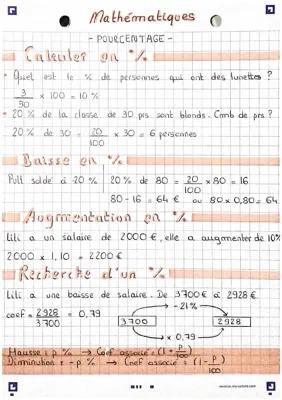 Mathématiques
- POURCENTAGE -
Calculer en %
• Quel est le % de personnes qui ont des lunettes ?
3/30 × 100 = 10 %
• 20 % de la classe de 30 prs sont blonds. Cmb de prs ?
20 % de 30 = 20/100 × 30 = 6 personnes
Baisse en %
Pull soldé à -20 % | 20 % de 80 = 20/100 × 80 = 16
80 - 16 = 64 € ou 80 × 0,80 = 64 €
Augmentation en %
Lili a un salaire de 2000 €, elle a augmenter de 10%
2000 × 1,10 = 2200 €
Recherche d'un %
Lili a une baisse de salaire. De 3700 € à 2928 €
-21%
coef = 2928/3700 = 0,79
3700
2928
× 0,79
Hausse = p % → Coef associé = (1 + p/100)
Diminution = -p % → Coef associé = (1 - p/100)